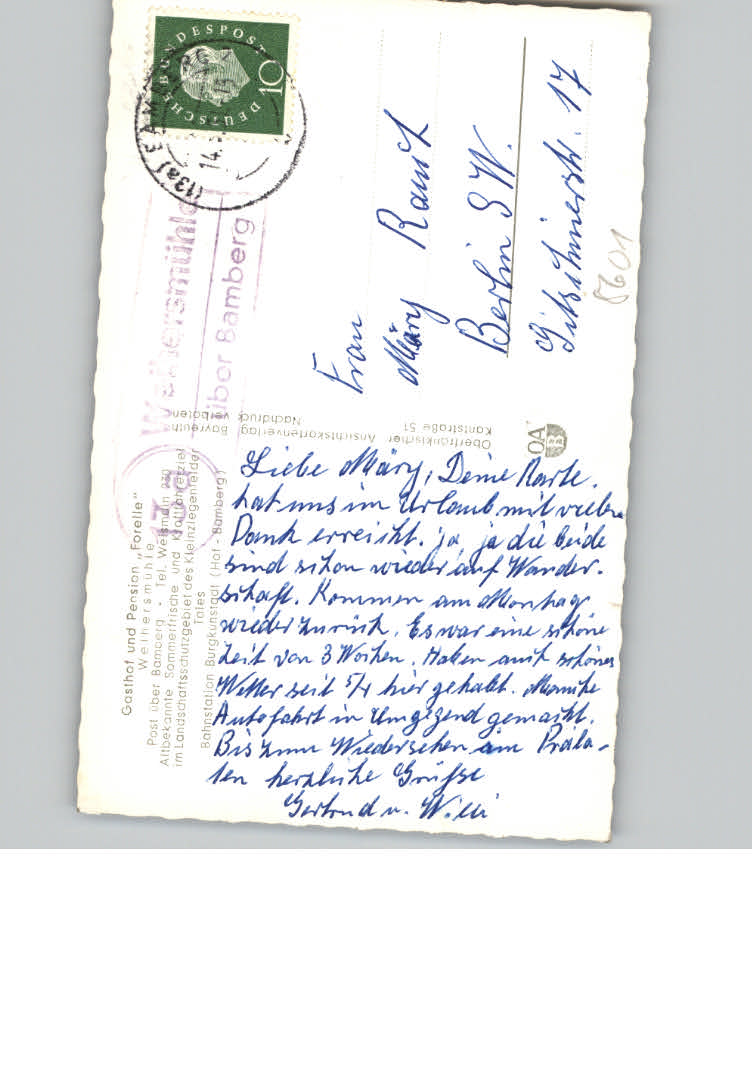 Gasthof und Pension „Forelle"
Weihersmühle
Post über Bamberg - Tel. Weismain 230
Altbekannte Sommerfrische und Kraftfahrerziel
im Landschaftsschutzgebiet des Kleinziegenfelder
Tales
Bahnstation Burgkunstadt (Hof - Bamberg)
Liebe Märy, Deine Karte.
hat uns im Urlaub mit vielen
Dank erreicht. ja ja die beide
sind schon wieder auf Wander-
schaft. Kommen am Montag
wieder zurück. Es war eine schöne
Zeit von 3 Wochen. Haben auch schönes
Wetter seit 5/4 hier gehabt. Manche
Autofahrt in Umgegend gemacht.
Bis zum Wiedersehen im Präla-
ten herzliche Grüße
Gertrud u. Willi
Oberfränkischer Ansichtskartenverlag Bayreuth
Kantstraße 51
Nachdruck verboten
OA
DEUTSCHE BUNDESPOST
10
(13a) BAMBERG
14.
13a
Weihersmühle
über Bamberg
Frau
Märy Rauch
Berlin SW.
Gitschinerstr. 17
5601